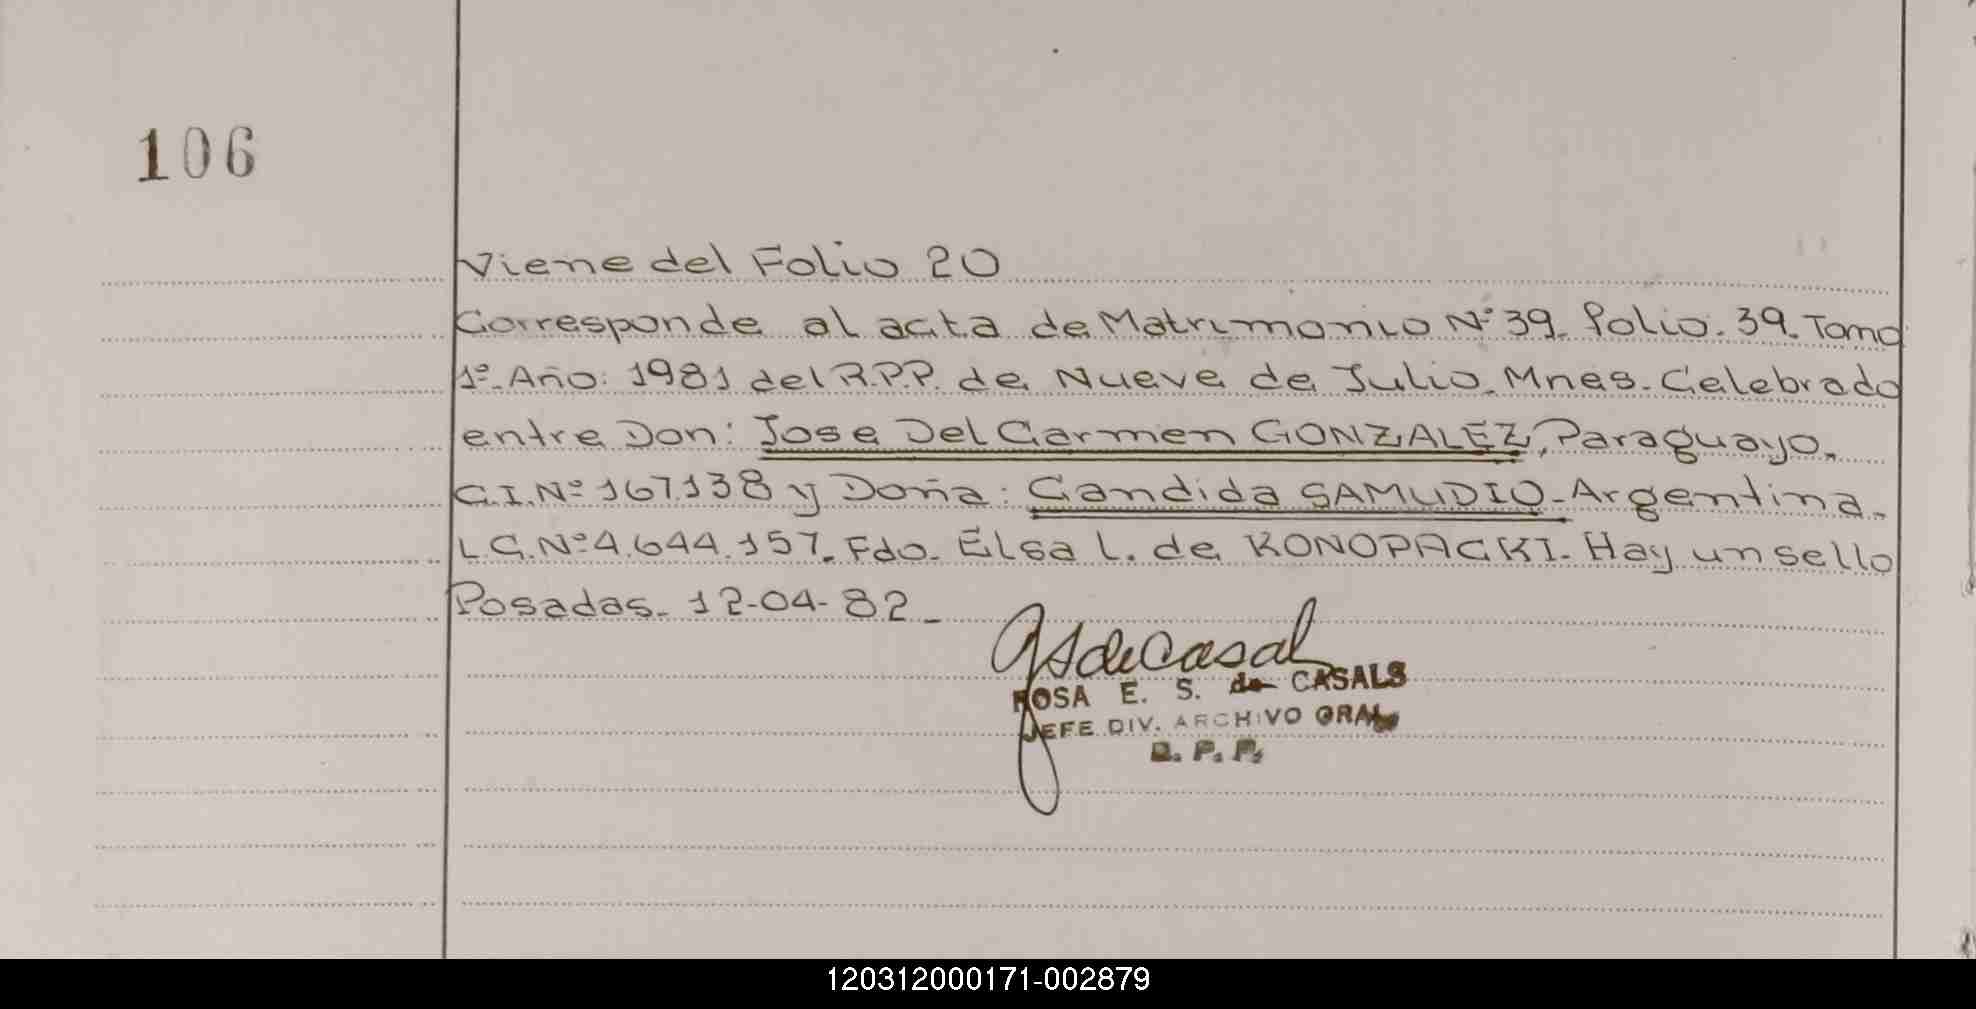 106
Viene del Folio 20
Corresponde al acta de Matrimonio Nº 39. Folio. 39. Tomo
1º. Año: 1981 del R.P.P. de Nueve de Julio. Mnes. Celebrado
entre Don: Jose Del Carmen GONZALEZ, Paraguayo.
C.I. Nº 167.138 y Doña: Candida SAMUDIO- Argentina.
L.C. Nº 4.644.157. Fdo. Elsa L. de KONOPACKI. Hay un sello
Posadas. 12-04-82_
de Casal
ROSA E. S. de CASALS
JEFE DIV. ARCHIVO GRAL
R. P. P.
120312000171-002879